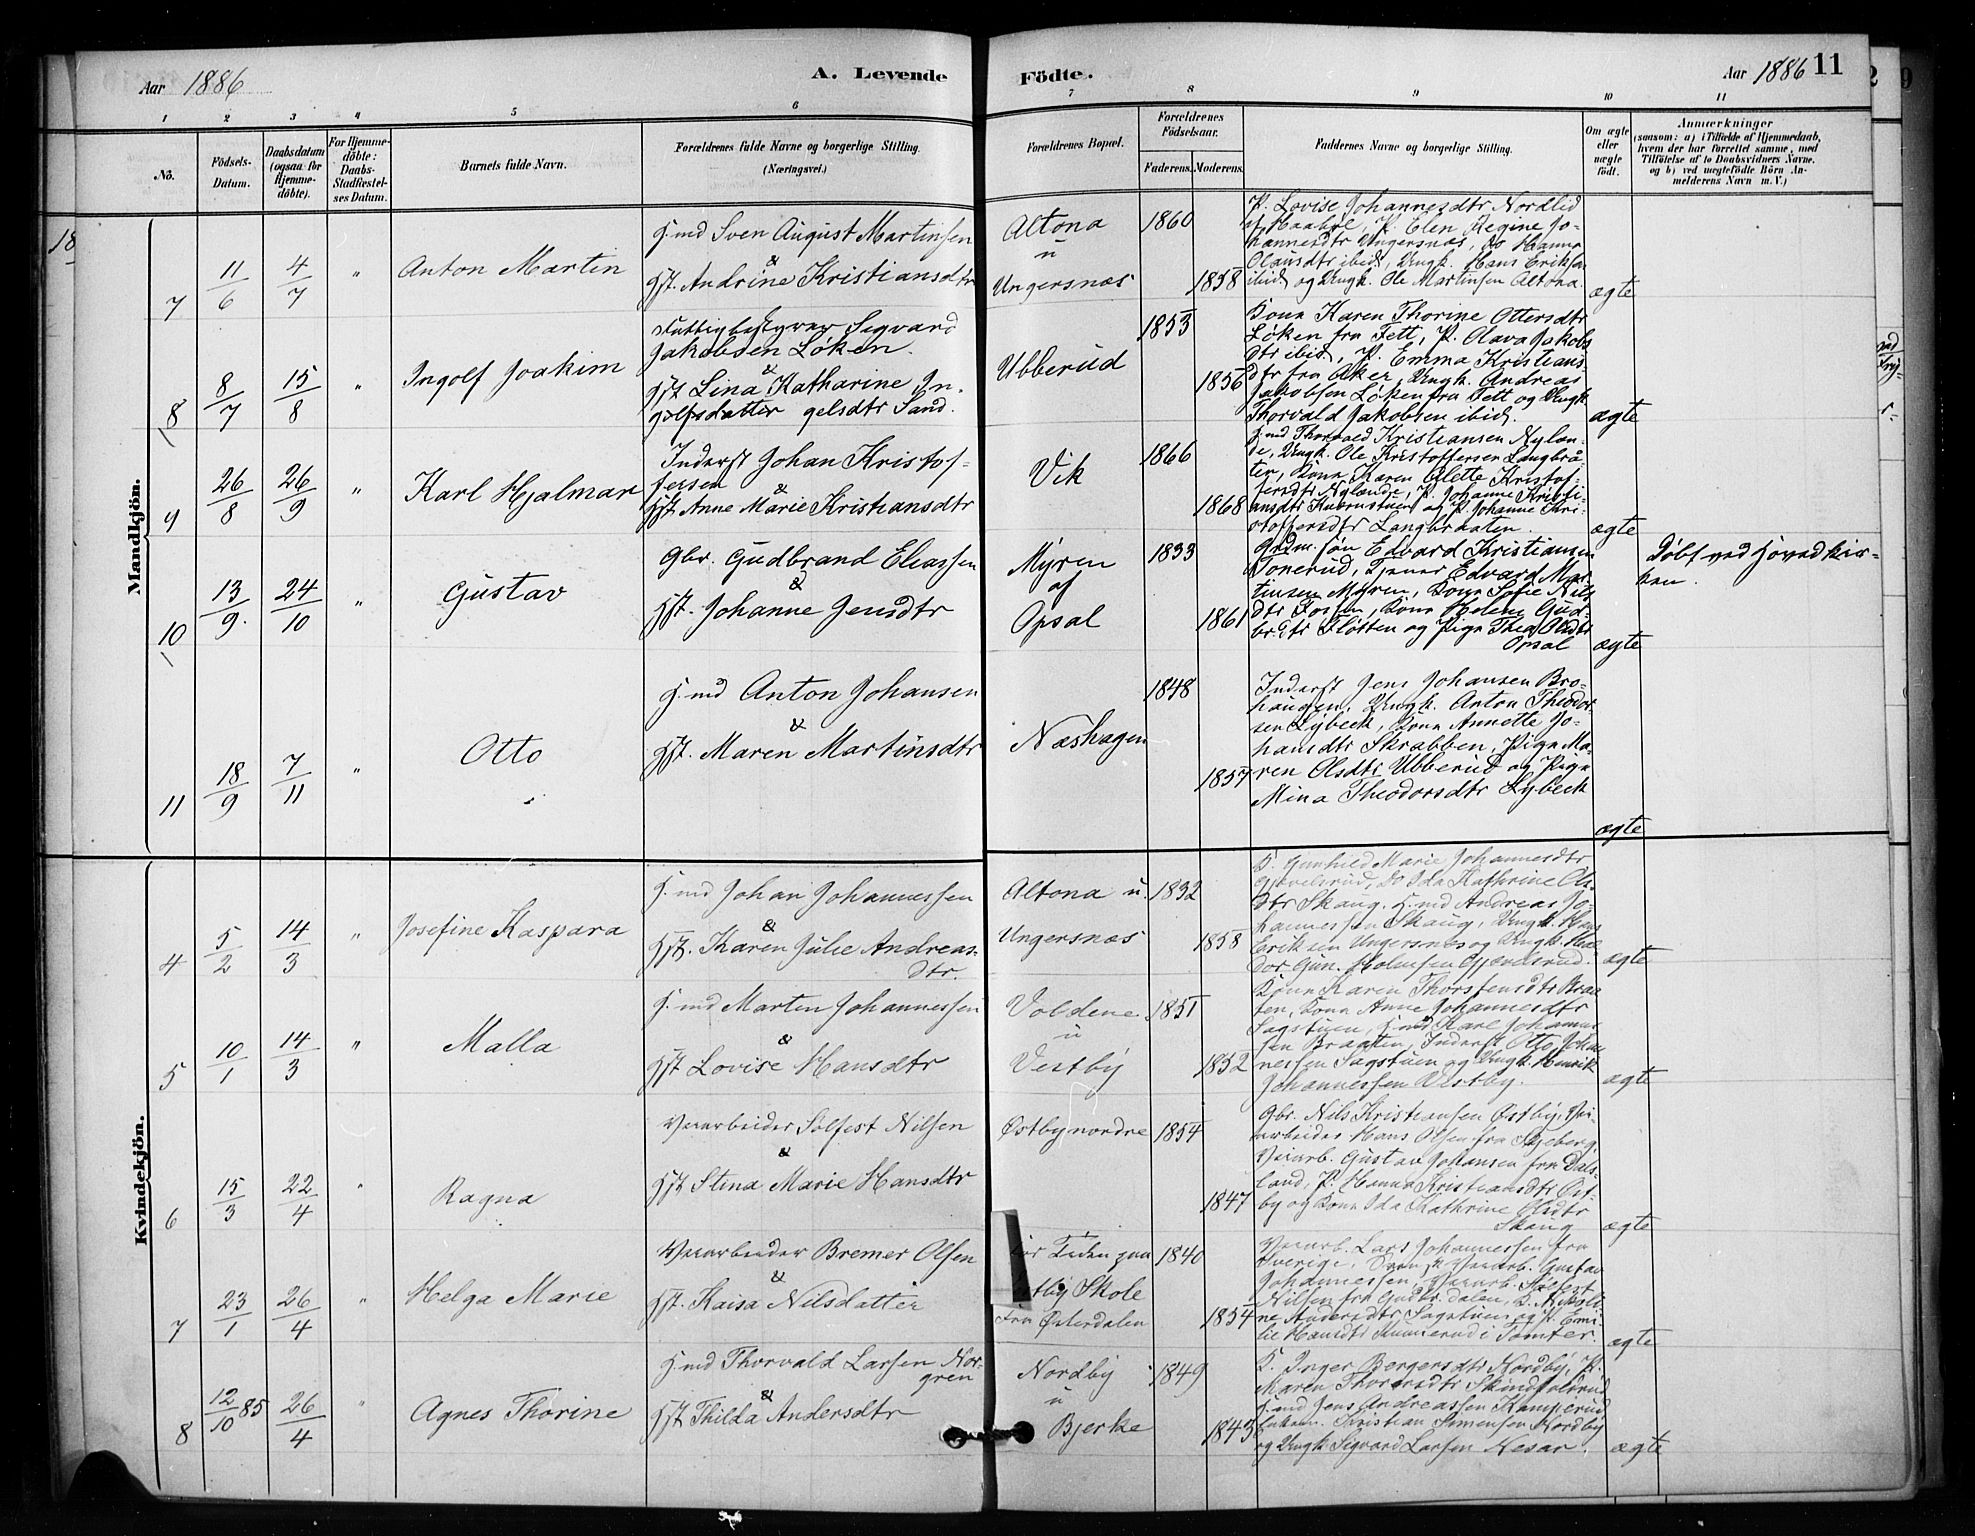 Aar 1886
A. Levende Födte.
Aar 1886 11
1 2 3 4 5 6 7 8 9 10 11
No.
Födsels-Datum.
Daabsdatum (ogsaa for Hjemme-döbte).
For Hjemme-döbte: Daabs-Stadfæstelses Datum.
Barnets fulde Navn.
Forældrenes fulde Navne og borgerlige Stilling. (Næringsvei.)
Forældrenes Bopæl.
Forældrenes Födselsaar.
Faderens. Moderens.
Faddernes Navne og borgerlige Stilling.
Om ægte eller uægte födt.
Anmærkninger
(saasom: a) i Tilfælde af Hjemmedaab,
hvem der har forrettet samme, med
Tilföielse af to Daabsvidners Navne.
og b) ved uægtefödte Börn An-
melderens Navn m. V.)
18
Mandkjön.
7 11/6 4/7 " Anton Martin
H.md Sven August Martinsen
&
Hst. Andrine Kristiansdtr
Altona
u
Ungersnæs
1860
1858
P. Lovise Johannesdtr Nordlid
af Haabøl, P. Elen Regine Jo-
hannesdtr Ungersnæs, do Hanna
Olausdtr ibid, Ungk. Hans Eriksen
ibid og Ungk. Ole Martinsen Altona.
ægte
8 8/7 15/8 " Ingolf Joakim
Fattigbestyrer Sigvard
Jakobsen Løken.
&
Hst Lina Katharine In-
golfsdatter gelsdtr Sand.
Ubberud
1853
1856
Kona Karen Thorine Ottersdtr
Løken fra Fett, P. Olava Jakobs
dtr ibid, P. Emma Kristians
dtr fra Aker, Ungk. Andreas
Jakobsen Løken fra Fett og Ungk.
Thorvald Jakobsen ibid.
ægte
9 26/8 26/9 " Karl Hjalmar
Inderst Johan Kristof-
fersen
&
Hst Anne Marie Kristiansdtr
Vik
1866
1868
H.md Thorvald Kristiansen Nylan-
de, Ungk. Ole Kristoffersen Langbrå-
ten, Kona Karen Olette Kristof-
fersdtr Nylande, P. Johanne Kristi-
ansdtr og P. Johanne Kri-
stoffersdtr Langbraaten.
ægte
10 13/9. 24/10 " Gustav
Gbr. Gudbrand Eliassen
&
Hst. Johanne Jensdtr
Myren
af
Opsal
1833
1861
Grdm. søn Edvard Kristiansen
Tonerud, Tjener Edvard Mar-
tinsen Myren, Kona Sofie Nils
dtr Kona Helene Gud-
br.dtr Fløtten og Pige Thea Olsdtr
Opsal
ægte
Døbt ved Hovedkir-
ken.
11 18/9 7/11 " Otto
H.md Anton Johansen
&
Hst. Maren Martinsdtr
Næshagen
1848
1857
Inderst Jens Johansen Bro-
haugen, Ungk. Anton Theodor-
sen Lybeck, Kona Annette Jo-
hansdtr Skrabben, Pige Ma-
ren Olsdtr Ubberud og Pige
Mina Theodorsdtr Lybeck
ægte
Kvindekjön.
4 5/2 14/3 " Josefine Kaspara
H.md Johan Johannessen
&
Hst. Karen Julie Andreas-
dtr.
Altona u.
Ungersnæs
1832
1858
K. Gunhild Marie Johannesdtr
Gjævelsrud, do Ida Kathrine Ols
dtr Skaug. H.md Andreas Jo-
hannessen Skaug, Ungk. Hans
Eriksen Ungersnes og Ungk.
Holmsen Gjævelsrud.
ægte
5 10/1 14/3 " Malla
H.md Marten Johannessen
&
Hst Lovise Hansdtr
Voldene
u
Vestby
1851
1852
Kona Karen Thorstensdtr Braa
ten, Kona Anne Johannesdtr
Sagstuen, H.md Karl Johannes
sen Braaten, Inderst Otto Johan
nessen Sagstuen og Ungk. Henrik
Johannessen Vestby.
ægte
6 15/3 22/4 " Ragna
Veiarbeider Solfest Nilsen
&
Hst Stina Marie Hansdtr
Østby nordre
1854
1847
Gbr. Nils Kristiansen Østby, Vei
arbeider Hans Olsen fra Skjeberg
Veiarb. Gustav Johansen fra Dals-
land, P. Hanna Kristiansdtr Øst-
by og Kona Ida Kathrine Olsdtr
Skaug
ægte
7 23/1 26/4 " Helga Marie
Veiarbeider Bremer Olsen
&
Hst. Kaisa Nilsdatter
for Tiden paa
Østby Skole
fra Østerdalen
1840
1854
Veiarb. Lars Johannessen fra
Sverige, Veiarb. Gustav
Johannessen, Veiarb. Solfest
Nilsen fra Gudbr.dalen, K.
ne Andersdtr Sagstuen og P. Emi-
lie Hansdtr i Tomter.
ægte
8 12/10 85 26/4 " Agnes Thorine
H.md Thorvald Larsen Nor-
gren
&
Hst Thilda Andersdtr
Nordby
u
Bjerke
1849
1843
K. Inger Bergersdtr Nordby, P.
Maren
H.md Jens Andreassen Kamperud
Kristian Simensen Nordby
og Ungk. Sigvard Larsen Nesar.
ægte